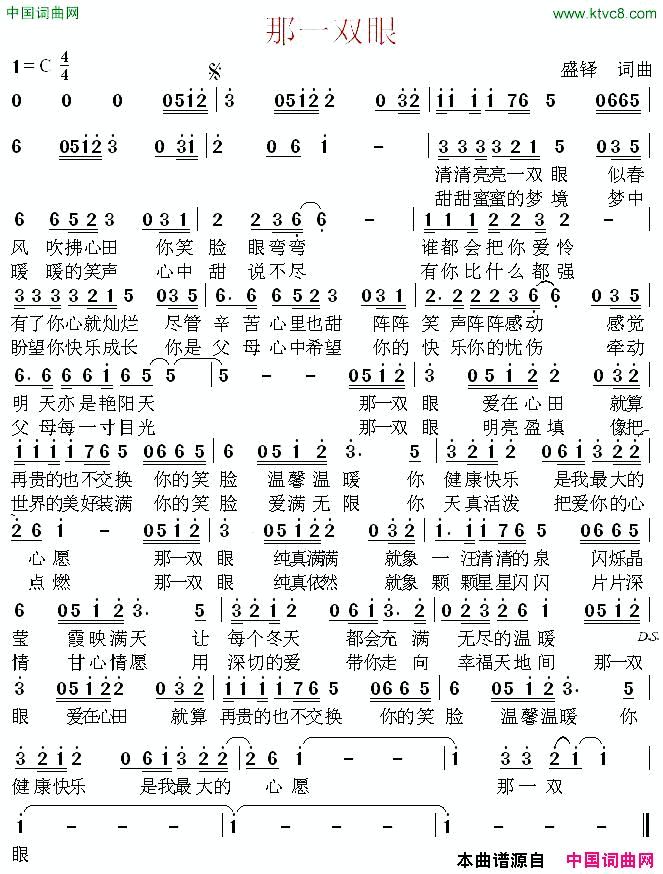 中国词曲网
www.ktvc8.com
那一双眼
1=C 4/4
盛铎 词曲
0 0 0 0512 | 3 0512 2 0 032 | 11 1 176 5 0665 |
6 0512 3 031 | 2 061 - | 333 321 5 035 |
清清亮亮一双眼 似春
甜甜蜜蜜的梦境 梦中
6 6523 031 | 2 236 6 - | 111 223 0 |
风 吹拂心田 你笑 脸 眼弯弯 谁都会把你爱怜
暖 暖的笑声 心中 甜 说不尽 有你比什么都强
333 3215 035 | 6. 6 6523 | 2. 2 2356 035 |
有了你心就灿烂 尽管 辛 苦心里也甜 阵阵 笑 声阵阵感动 感觉
盼望你快乐成长 你是 父 母心中希望 你的 快 乐你的忧伤 牵动
6. 6 6 6165 5 | 5 - - 0512 | 3 0512 2 032 |
明 天亦是艳阳天 那一双 眼 爱在心田 就算
父 母每一寸目光 那一双 眼 明亮盈填 像把
1111765 0665 | 6 0512 3. 5 | 3212 061321 |
再贵的也不交换 你的笑 脸 温馨温暖 你 健康快乐 是我最大的
世界的美好装满 你的笑 脸 爱满无限 你 天真活泼 把爱你的心
261 - 0512 | 3 0512 2 032 | 1. 111765 0665 |
心愿 那一双 眼 纯真满满 就象 一 汪清清的泉 闪烁晶
点燃 那一双 眼 纯真依然 就象 颗 颗星星闪闪 片片深
6 0512 3. 5 | 3212 061321 | 2 061 - 0512 |
莹 霞映满天 让 每个冬天 都会充满 无尽的温暖 D.S.
情 甘心情愿 用 深切的爱 带你走向 幸福天地间 那一双
3 0512 2 032 | 1111765 0665 | 6 0512 3. 5 |
眼 爱在心田 就算 再贵的也不交换 你的笑 脸 温馨温暖 你
3212 061321 | 261 1 - | 1 332 1 |
健康快乐 是我最大的 心愿 那一双
1 - - - | 1 - - - | 1 - - - ‖
眼
本曲谱源自 中国词曲网